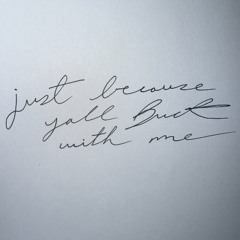 just because
yall Buck
with me